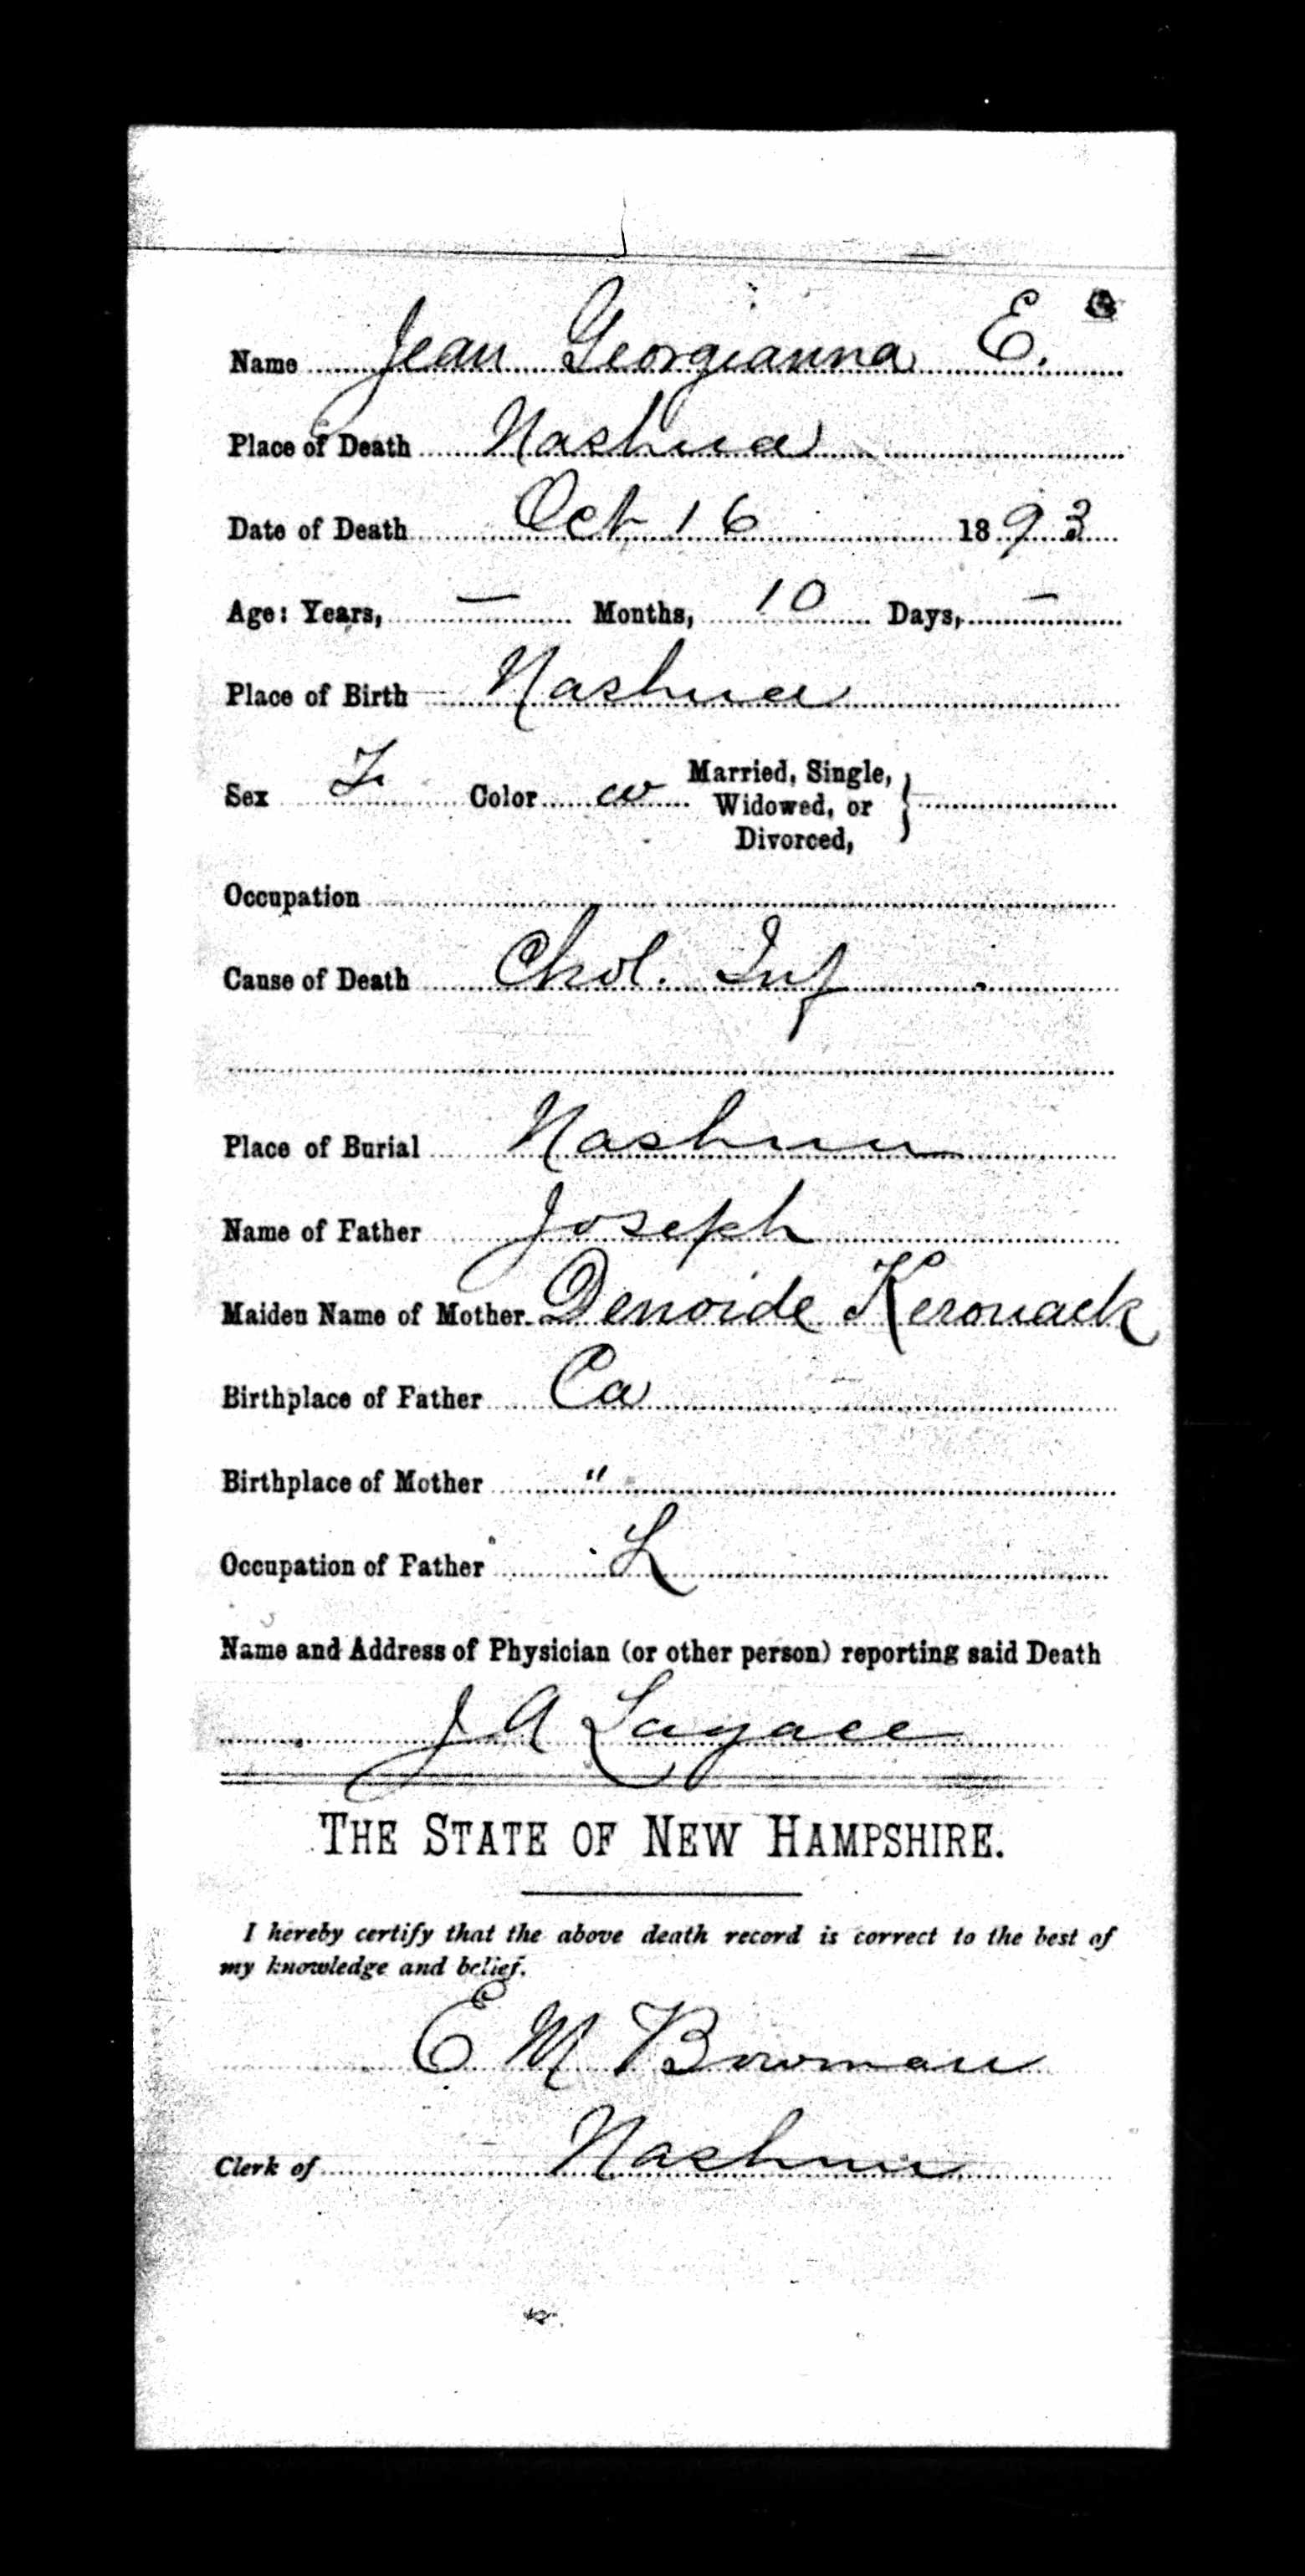 Name Jean Georgianna E.
Place of Death Nashua
Date of Death Oct 16 1893
Age: Years, — Months, 10 Days, —
Place of Birth Nashua
Sex F. Color w Married, Single,
Widowed, or
Divorced,
Occupation
Cause of Death Chol. Inf
Place of Burial Nashua
Name of Father Joseph
Maiden Name of Mother Denoide Kerouack
Birthplace of Father Ca
Birthplace of Mother "
Occupation of Father L
Name and Address of Physician (or other person) reporting said Death
J A Lagace
THE STATE OF NEW HAMPSHIRE.
I hereby certify that the above death record is correct to the best of
my knowledge and belief.
E M Bowman
Clerk of Nashua